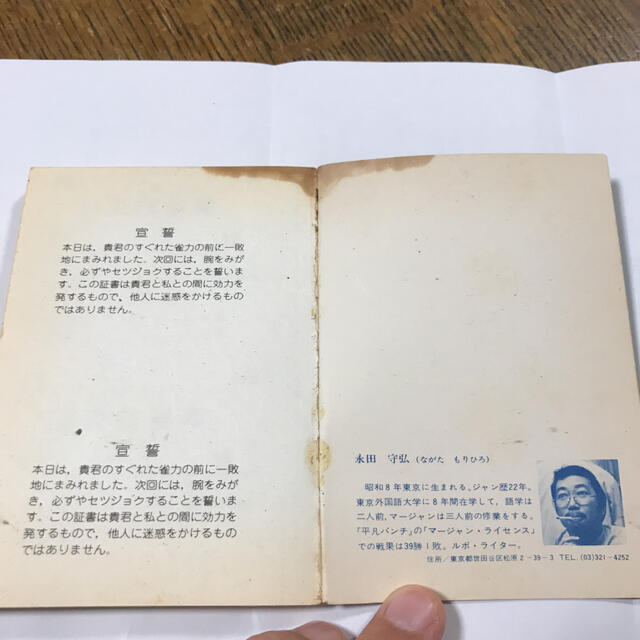 宣誓
本日は，貴君のすぐれた雀力の前に一敗
地にまみれました。次回には，腕をみが
き，必ずやセツジョクすることを誓いま
す。この証書は貴君と私との間に効力を
発するもので，他人に迷惑をかけるもの
ではありません。
宣誓
本日は，貴君のすぐれた雀力の前に一敗
地にまみれました。次回には，腕をみが
き，必ずやセツジョクすることを誓いま
す。この証書は貴君と私との間に効力を
発するもので，他人に迷惑をかけるもの
ではありません。
永田 守弘（ながた もりひろ）
昭和8年東京に生まれる。ジャン歴22年。
東京外国語大学に8年間在学して，語学は
二人前，マージャンは三人前の修業をする。
『平凡パンチ』の「マージャン・ライセンス」
での戦果は39勝1敗。ルポ・ライター。
住所／東京都世田谷区松原2-39-3 TEL.(03)321-4252